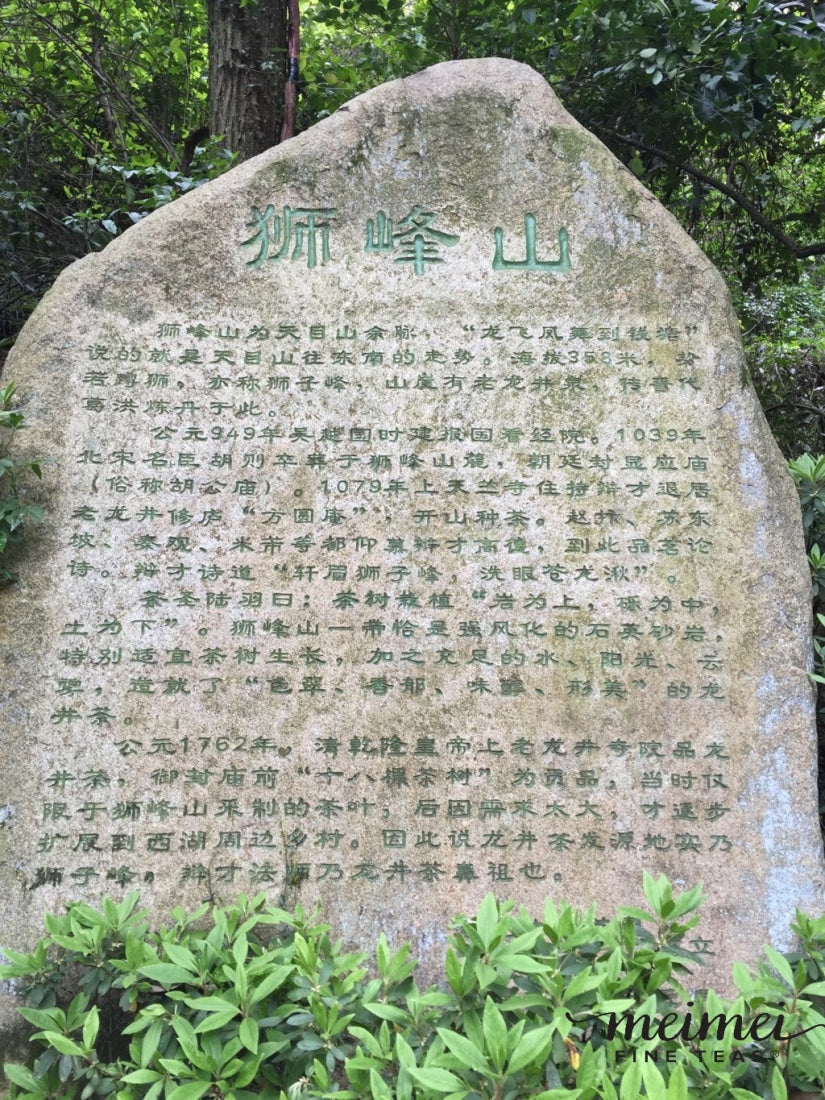 狮峰山
狮峰山为天目山余脉，“龙飞凤舞到钱塘”
说的就是天目山往东南的走势。海拔358米，岩
若蹲狮，亦称狮子峰，山崖有老龙井泉，传晋代
葛洪炼丹于此。
公元949年吴越国时建报国看经院。1039年
北宋名臣胡则卒葬于狮峰山麓，朝廷封显应庙
（俗称胡公庙）。1079年上天竺寺住持辩才退居
老龙井修庐“方圆庵”，开山种茶。赵抃、苏东
坡、秦观、米芾等都仰慕辩才高德，到此品茗论
诗。辩才诗道“轩眉狮子峰，洗眼苍龙湫”。
茶圣陆羽曰：茶树栽植“岩为上，砾为中，
土为下”。狮峰山一带恰是强风化的石英砂岩，
特别适宜茶树生长，加之充足的水、阳光、云
雾，造就了“色翠、香郁、味醇、形美”的龙
井茶。
公元1762年，清乾隆皇帝上老龙井寺院品龙
井茶，御封庙前“十八棵茶树”为贡品，当时仅
限于狮峰山采制的茶叶，后因需求太大，才逐步
扩展到西湖周边乡村。因此说龙井茶发源地实乃
狮子峰，辩才法师乃龙井茶鼻祖也。
立
meimei
FINE TEAS®